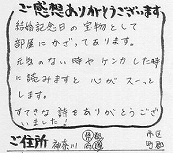 ご感想ありがとうございます
結婚記念日の宝物として
部屋にかざってあります。
元気のない時やケンカした時
に読みますと 心がスーッと
します。
すてきな詩をありがとうござ
いました!
ご住所 神奈川 都道府県 市区町郡